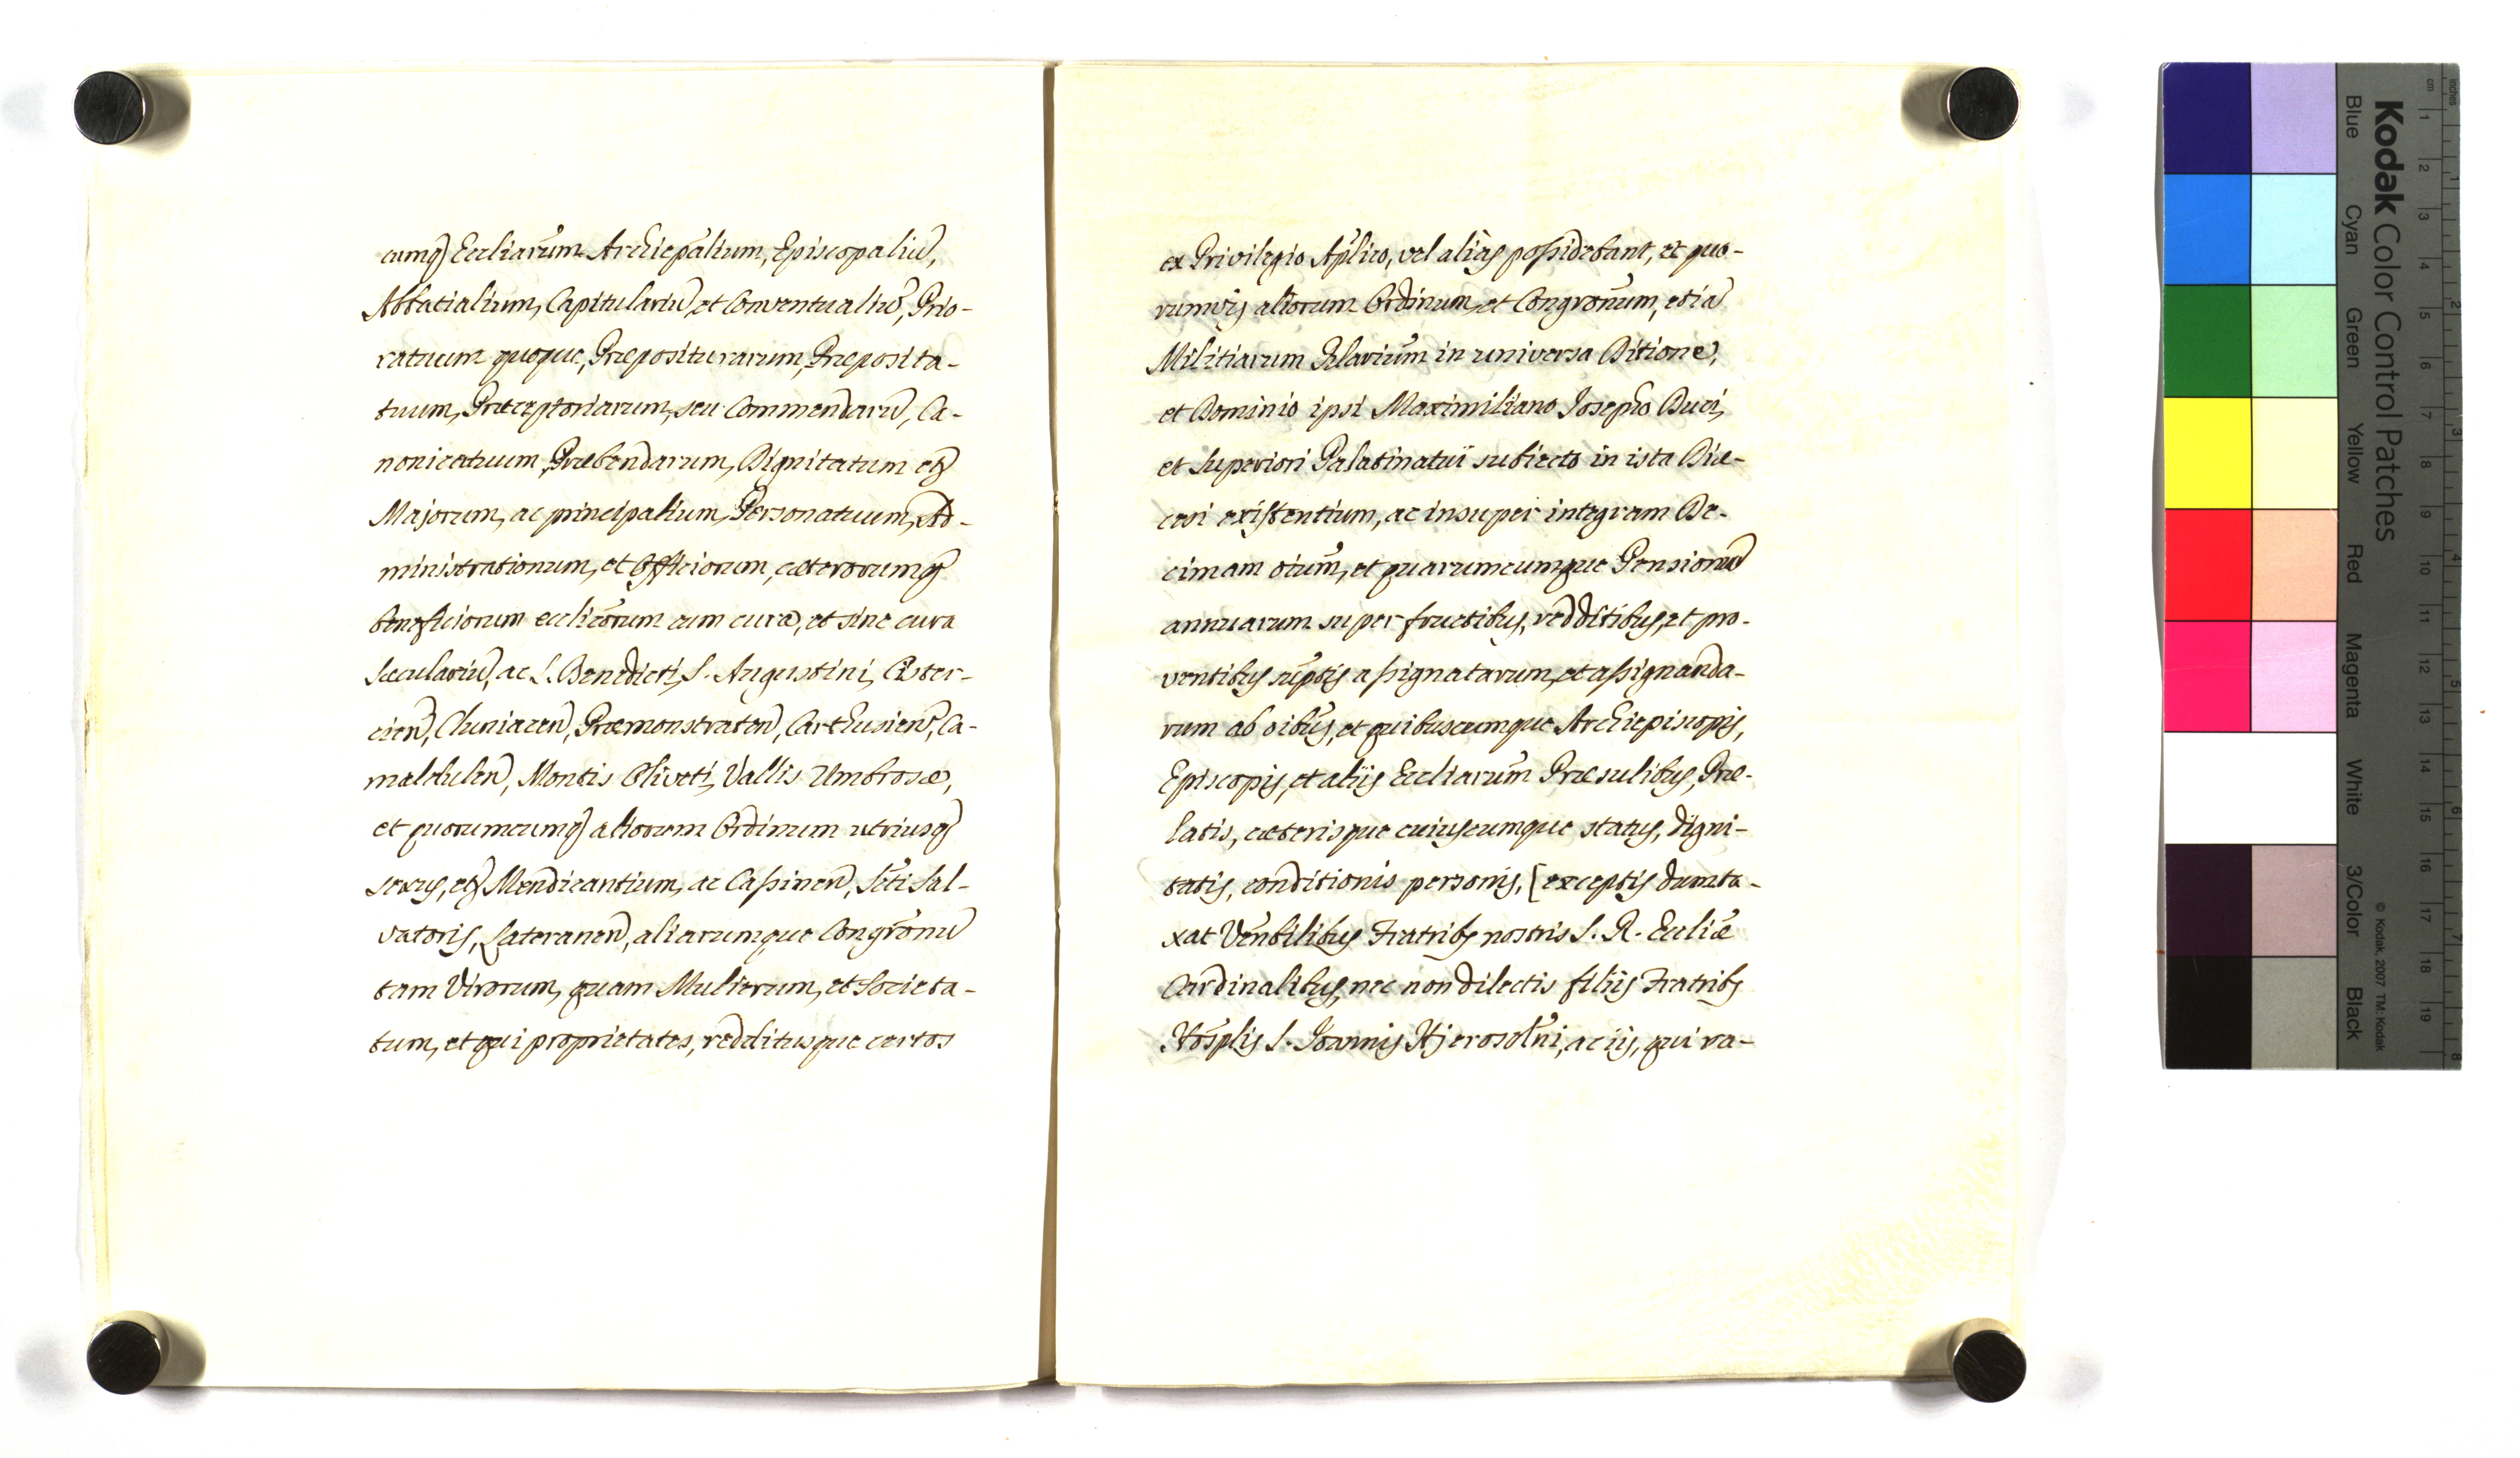 cumq Eccliarum Archiepālium, Episcopaliū,
Abbatialium, Capitulariū, et Conventualiū, Prio-
ratuum quoque, Præpositurarum, Præposita-
tuum, Præceptoriarum, seu Commendarū, Ca-
nonicatuum, Præbendarum, Dignitatum etq
Majorum, ac principalium, Personatuum, Ad-
ministrationum, et Officiorum, cæterorumq
beneficiorum eccliCorum cum cura, et sine cura
Sæculariū, ac S. Benedicti, S. Augustini, Cister-
cien, Cluniacen, Præmonstraten, Carthusien, Ca-
maldulen, Montis Oliveti, Vallis Umbrosæ,
et quorumcumq aliorum Ordinum utriusq
sexus, etq Mendicantium, ac Cassinen, Scti Sal-
vatoris, Lateranen, aliarumque Congrōnū
tam Virorum, quam Mulierum, et Societa-
tum, et qui proprietates, redditusque certos
ex Privilegio Aplico, vel alias possidebant, et quo-
rumvis aliorum Ordinum, et Congrōnum, etiā
Militiarum Rlarium in universa Ditione,
et Dominio ipsi Maximiliano Josepho Duci,
et Superiori Palatinatui subiecto in ista Diœ-
cesi existentium, ac insuper integram De-
cimam oium, et quarumcumque Pensionū
annuarum super fructibus, redditibus, et pro-
ventibus suptis assignatarum, et assignanda-
rum ab oibus, et quibuscumque Archiepiscopis,
Episcopis, et aliis Eccliarum Præsulibus, Præ-
latis, cæterisque cuiuscumque status, digni-
tatis, conditionis personis, [exceptis dumta-
xat Venbilibus Fratribs nostris S. R. Ecliæ
Cardinalibus, nec non dilectis filiis Fratribs
Hosplis S. Joannis Hjerosolni, ac iis, qui ra-
Kodak Color Control Patches
Blue Cyan Green Yellow Red Magenta White 3/Color Black
© Kodak, 2007 TM: Kodak
cm 1 2 3 4 5 6 7 8 9 10 11 12 13 14 15 16 17 18 19
inches 1 2 3 4 5 6 7 8